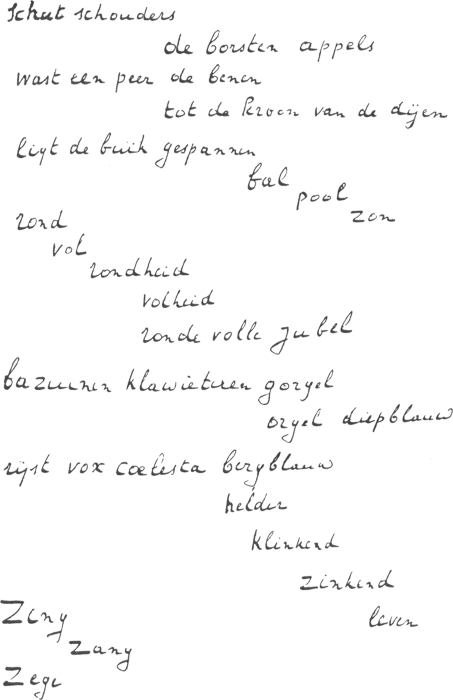 schut schouders
de borsten appels
wast een peer de benen
tot de kroon van de dijen
ligt de buik gespannen
bal
pool
zon
rond
vol
rondheid
volheid
ronde volle jubel
bazuinen klawieturen gorgel
orgel diepblauw
rijst vox coelesta bergblauw
helder
klinkend
zinkend
leven
Zeng
zang
Zege